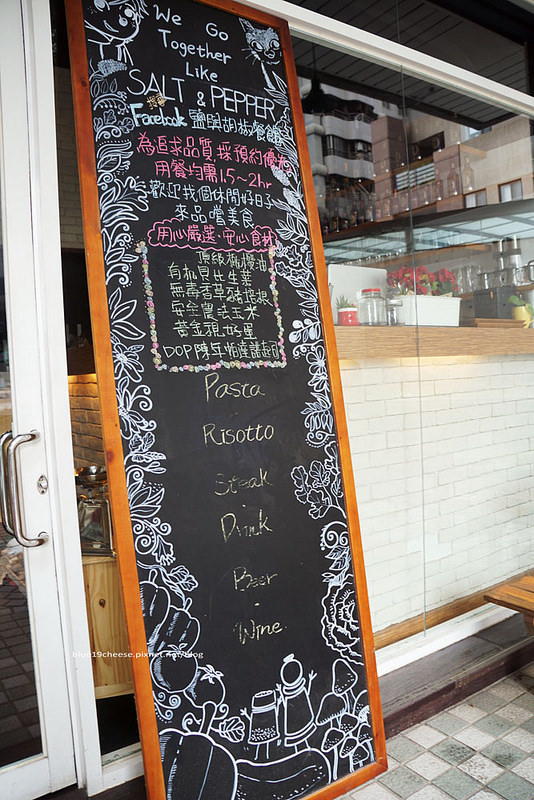 We Go
Together
Like
SALT & PEPPER
Facebook 鹽與胡椒餐館
為追求品質採預約優先
用餐均需1.5~2hr
歡迎找個休閒好日子
來品嚐美食
用心嚴選·安心食材
頂級橄欖油
有機貝比生菜
無毒香草豬培根
安全農法玉米
黃金視好蛋
DOP陳年帕達諾起司
Pasta
Risotto
Steak
Drink
Beer
Wine
blue19cheese.pixnet.net/blog